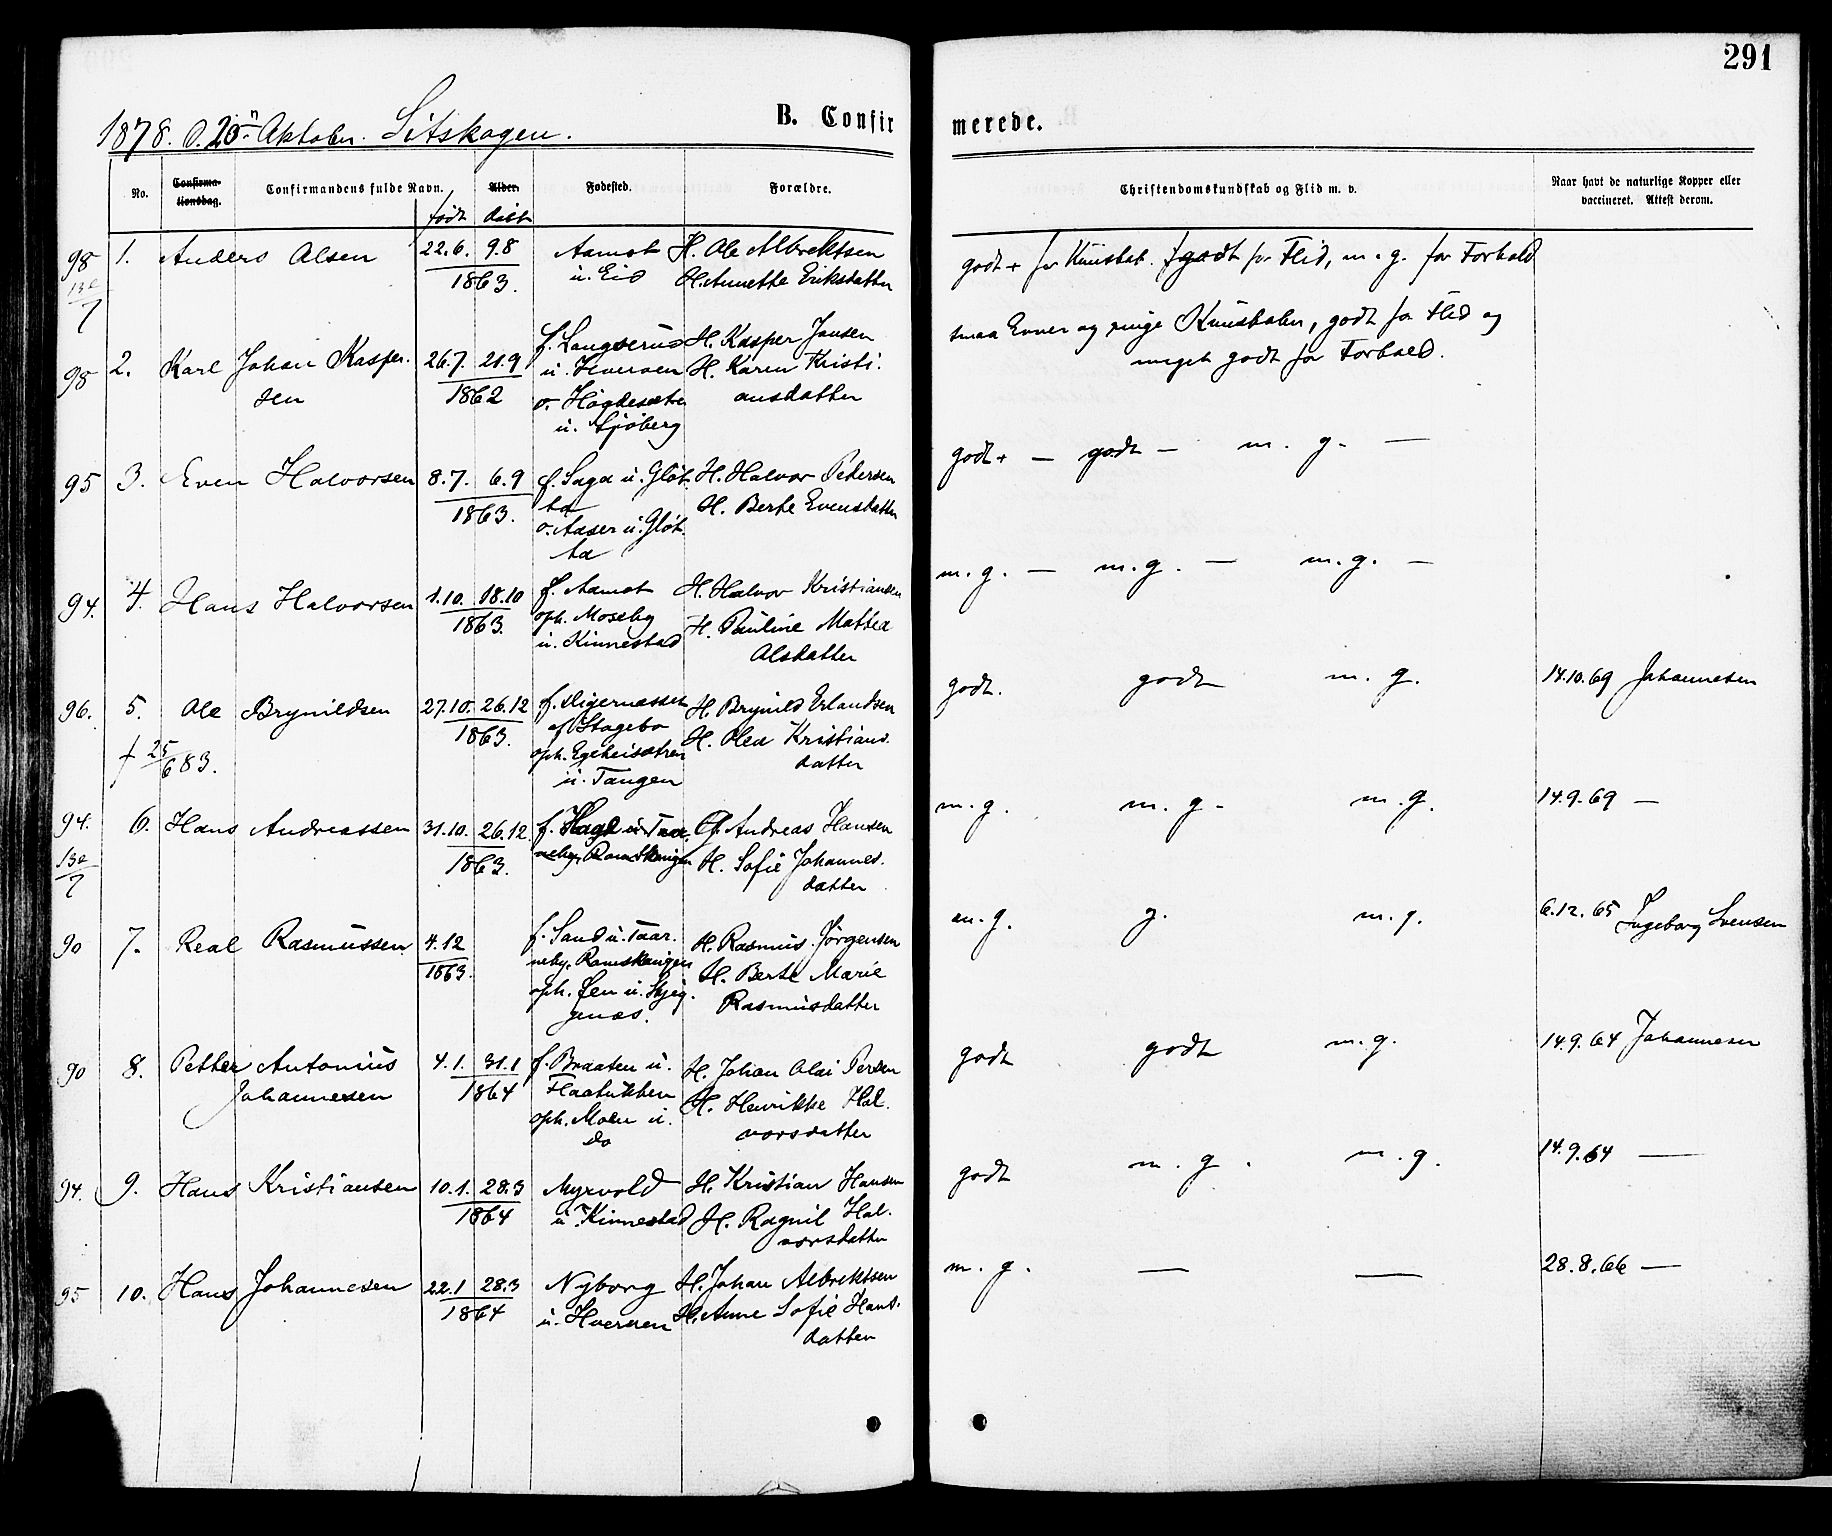 291
1878. d. 20n Oktober. Sitskogen.
B. Confir
merede.
No.
Confirma-
tionsdag.
Confirmandens fulde Navn.
Alder.
Fødested.
Forældre.
Christendomskundskab og Flid m. v.
Naar havt de naturlige Kopper eller
vaccineret. Attest derom.
født døbt
98 1. Anders Olsen 22.6. 9.8 Aamot H. Ole Albrektsen
1863. u. Eid H. Annette Eriksdatter
godt + for Kundskab. godt for Flid, m. g. for Forhold
7
98 2. Karl Johan Kasper. 26.7. 21.9 f. Langserud H. Kasper Jansen
sen 1862 u. H. Karen Kristi.
o. Høgdesætre ansdatter
u. Sjöberg
smaa Evner og ringe Kundskaber, godt for Flid og
meget godt for Forhold.
95 3. Even Halvorsen 8.7. 6.9 f. Saga u. Gløt. H. Halvor Petersen
1863. ta H. Berte Evensdatter
o. Aaser u. Gløt.
ta
godt + — godt — m. g. —
94. 4. Hans Halvorsen 1.10. 18.10 f. Aamot H. Halvor Kristiansen
1863. oph. Moseby H. Pauline Mattea
u. Kinnestad Olsdatter
m. g. — m. g. — m. g. —
96. 5. Ole Brynildsen 27.10. 26.12 f. H. Brynild Erlandsen
1863. af Stagebo H. Olea Kristians.
oph. datter
u. Tangen
† 25/6 83.
godt. godt m. g. 14.10.69 Johannesen
94. 6. Hans Andreassen 31.10. 26.12. f. Hage u. Taa. G. Andreas Hansen
1863. neby, Romskaugen H. Sofie Johannes.
datter
7
m. g. m. g. m. g. 14.9.69 —
90 7. Real Rasmussen 4.12 f. Sand u. Taar. H. Rasmus Jørgensen
1863. neby, Romskaugen H. Berte Marie
oph. Øen u. Skjeg. Rasmusdatter
genæs.
m. g. g. m. g. 6.12.65 Ingeborg Svensen
90 8. Petter Antonius 4.1. 31.1 f. Braaten u. H. Johan Olai Persen
Johannesen 1864 H. Henrikke Hal.
oph. Moen u. vorsdatter
do
godt godt m. g. 14.9.64 Johannesen
94. 9. Hans Kristiansen 10.1. 28.3 Myrvold H. Kristian Hansen
1864 u. Kinnestad H. Ragnil Hal.
vorsdatter
godt m. g. m. g. 14.9.64 —
95 10. Hans Johannesen 22.1 28.3 Nyborg H. Johan Albrektsen
1864 u. Hvernen H. Anne Sofie Hans.
datter
m. g. — — 28.8.66 —